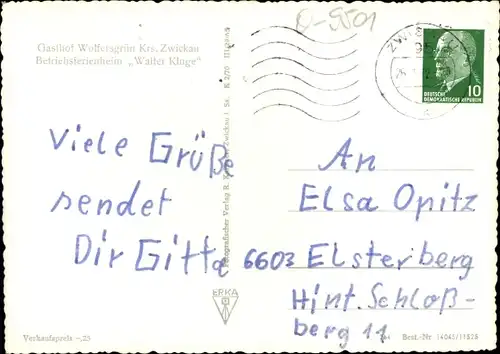 D-9501
Gasthof Wolfersgrün Krs. Zwickau
Betriebsferienheim „Walter Kluge"
ZWICKAU
DEUTSCHE
DEMOKRATISCHE REPUBLIK
10
Viele Grüße
sendet
Dir Gitta
An
Elsa Opitz
6603 Elsterberg
Hint. Schloß-
berg 11
ERKA
Verkaufspreis -,25
Best.-Nr